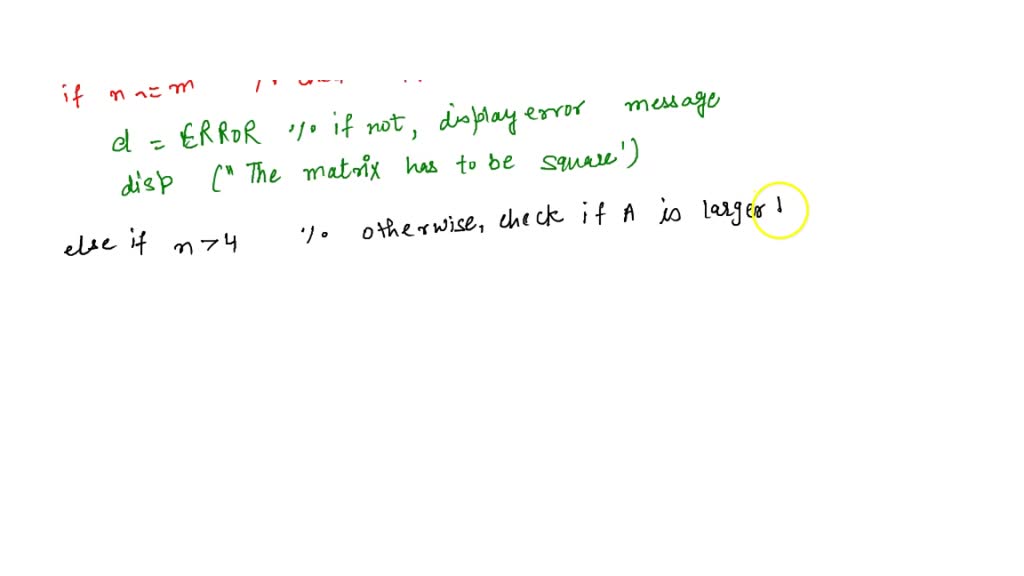 if n ~= m
d = ERROR % if not, display error message
disp (" The matrix has to be square')
else if n > 4 % otherwise, check if A is larger